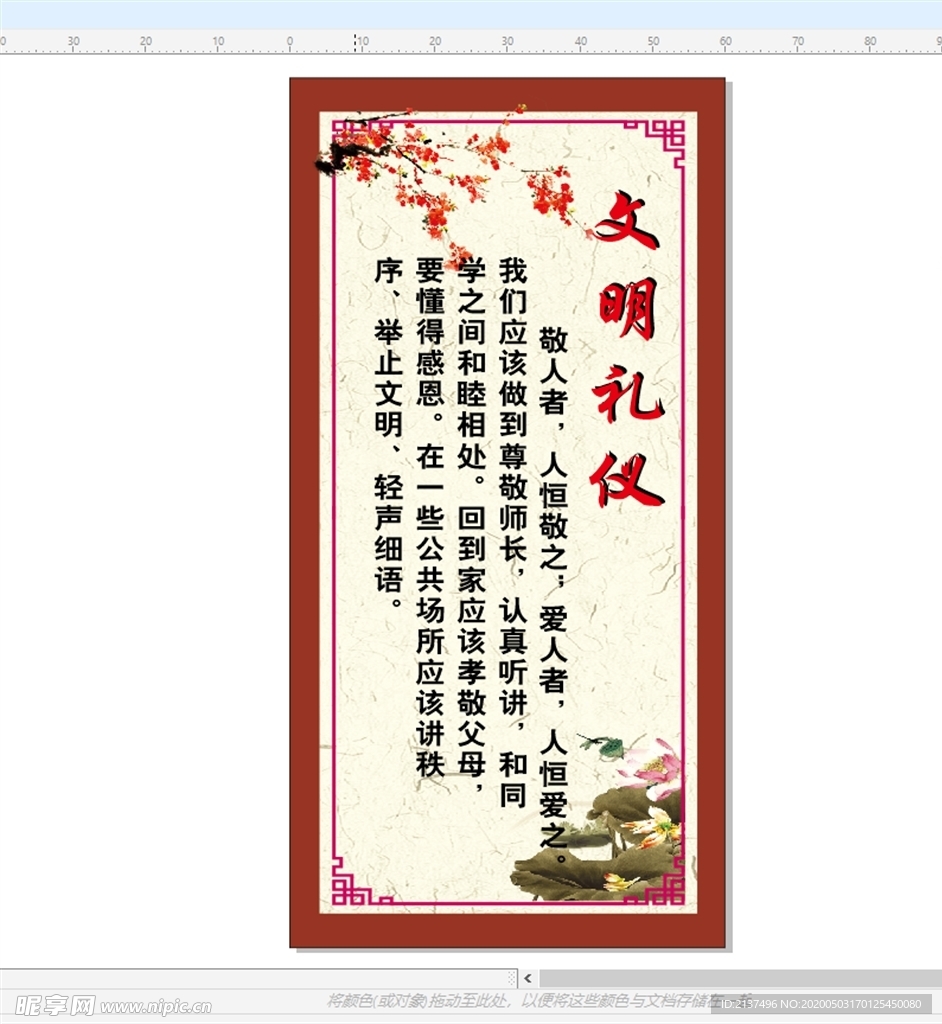 0 30 20 10 0 10 20 30 40 50 60 70 80 9
文明礼仪
敬人者，人恒敬之；爱人者，人恒爱之。
我们应该做到尊敬师长，认真听讲，和同
学之间和睦相处。回到家应该孝敬父母，
要懂得感恩。在一些公共场所应该讲秩
序、举止文明、轻声细语。
将颜色(或对象)拖动至此处，以便将这些颜色与文档存储在一起
昵享网 www.nipic.cn
ID:2137496 NO:20200503170125450080